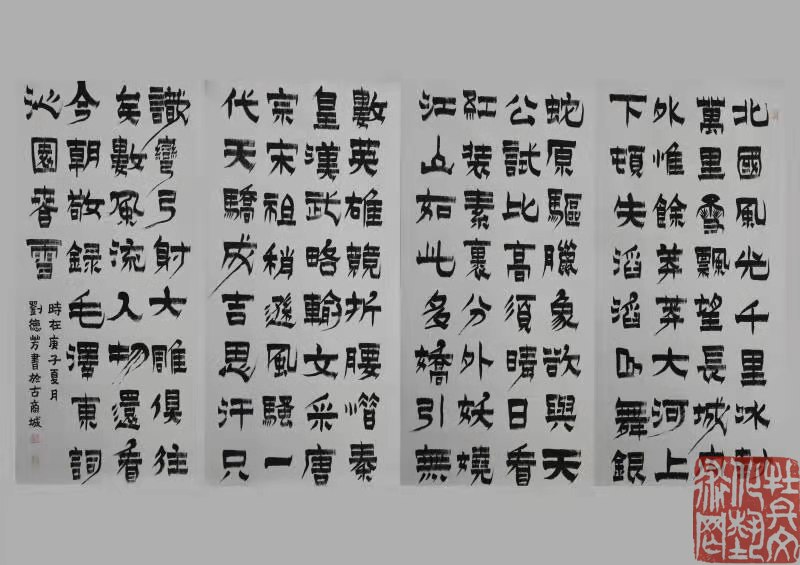 北國風光千里冰
萬里雪飄望長城
外惟餘莽莽大河上
下頓失滔滔山舞銀
蛇原驅臘象欲與天
公試比高須晴日看
紅裝素裹分外妖嬈
江山如此多嬌引無
數英雄競折腰惜秦
皇漢武略輸文采唐
宗宋祖稍遜風騷一
代天驕成吉思汗只
識彎弓射大雕俱往
矣數風流人物還看
今朝敬録毛澤東詞
沁園春雪
時在庚子夏月
劉德芳書於古商城